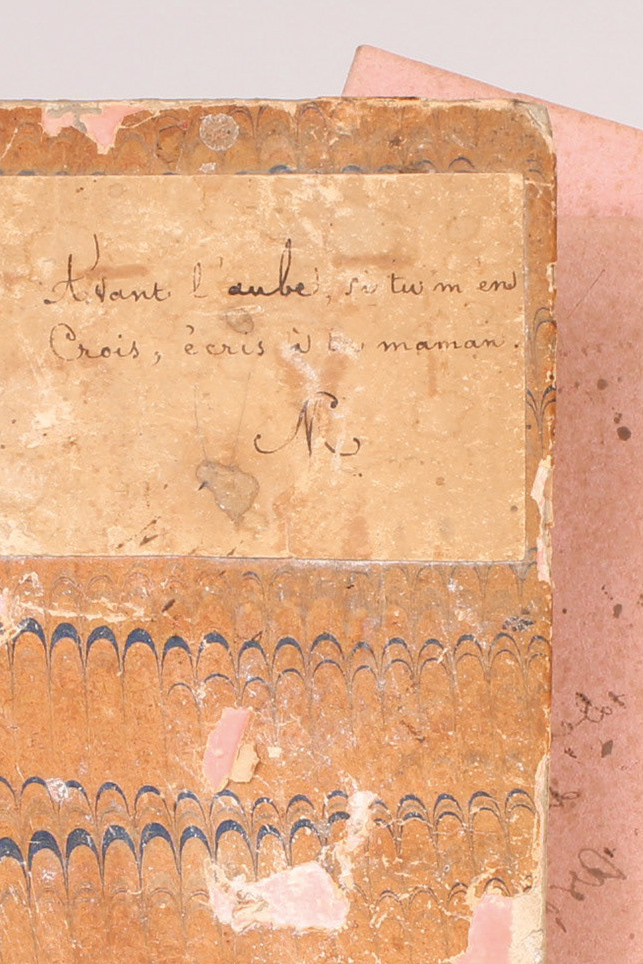 Avant l'aube, si tu m'en
Crois, écris à ta maman.
N.